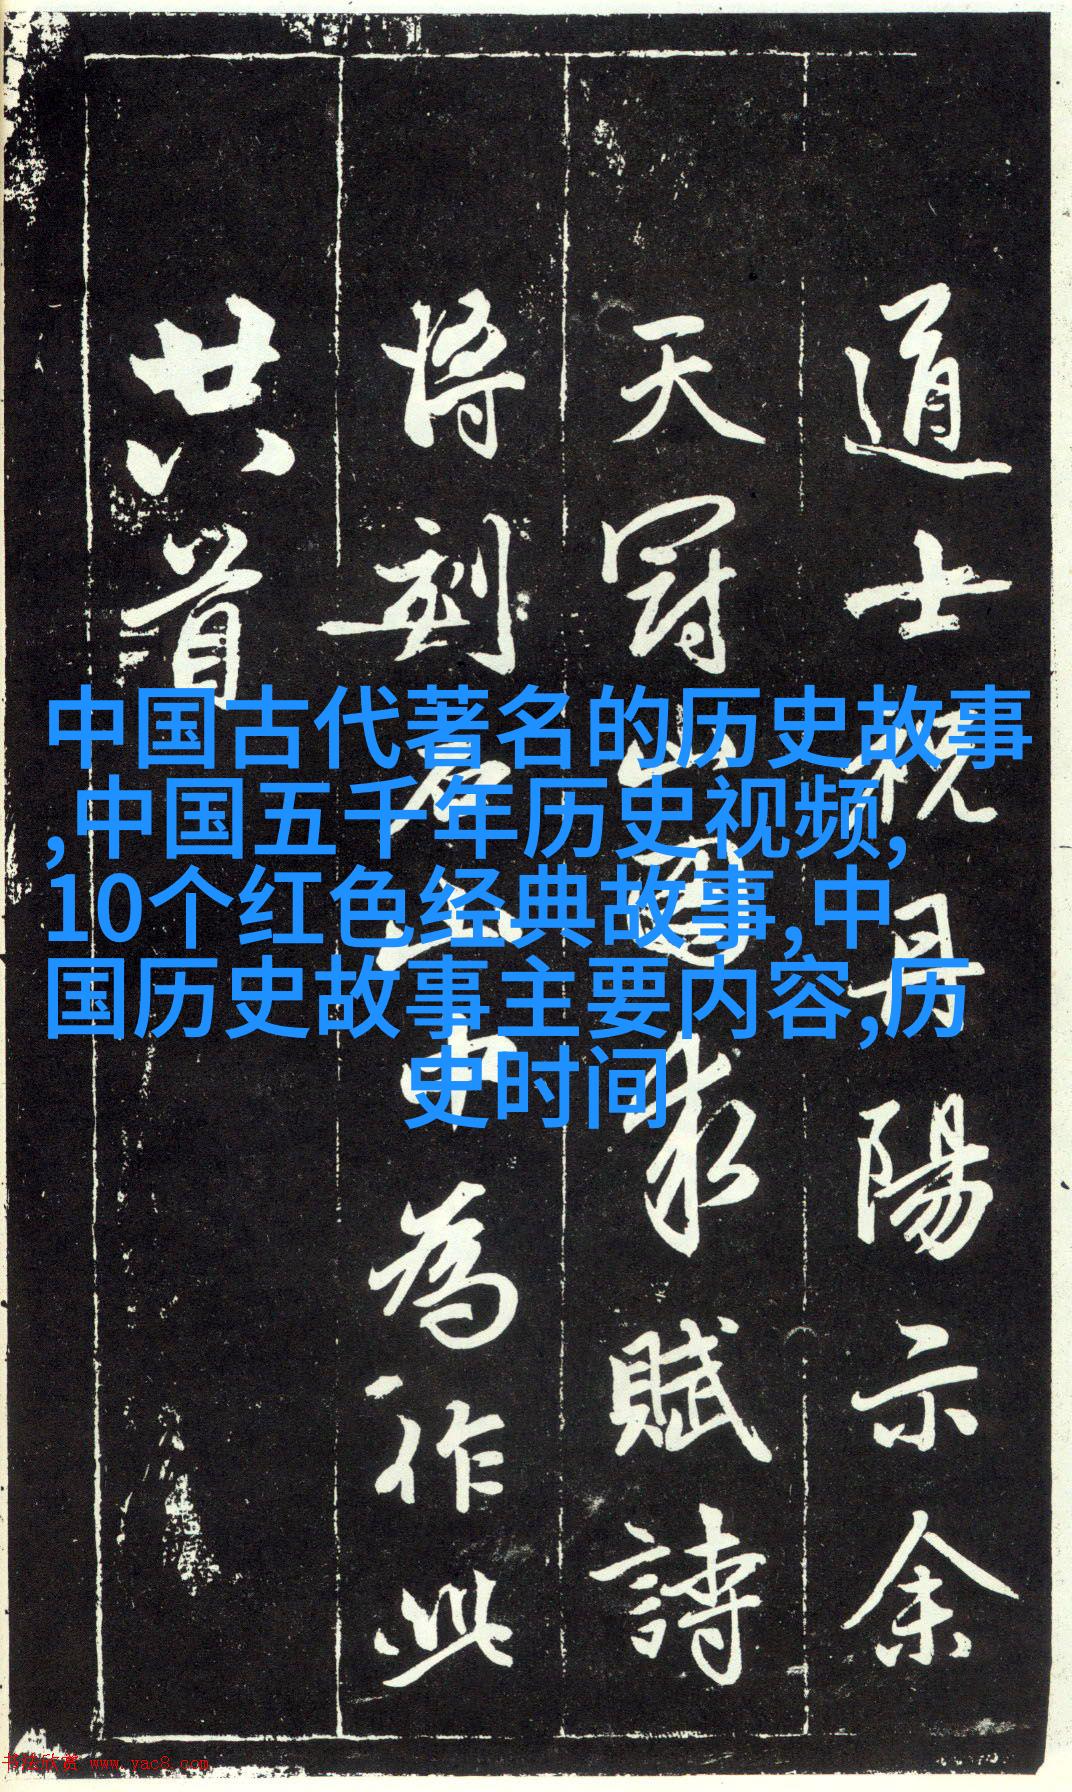 道士祝丹陽示余
天冠山圖求賦詩
將刻石山中為作此
廿八首
中国古代著名的历史故事
,中国五千年历史视频,
10个红色经典故事,中
国历史故事主要内容,历
史时间
书法欣赏 www.yac8.com